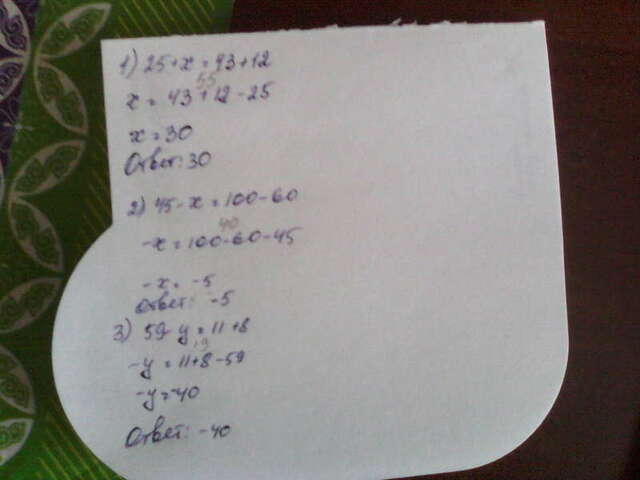 1) 25+x=43+12
55
x = 43+12-25
x=30
Ответ: 30
2) 45-x=100-60
40
-x=100-60-45
-x= -5
Ответ: -5
3) 59-y=11+8
19
-y=11+8-59
-y=-40
Ответ: -40